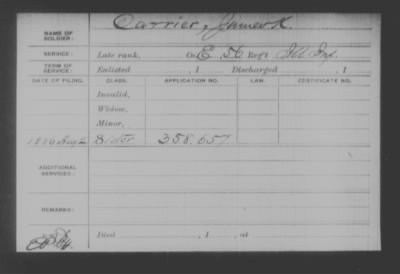 NAME OF SOLDIER: Carrier, James K.
SERVICE: Late rank, Co. E, 56 Reg't Ill Inf.
TERM OF SERVICE: Enlisted , 1 Discharged , 1
DATE OF FILING. CLASS. APPLICATION NO. LAW. CERTIFICATE NO.
Invalid,
Widow,
Minor,
1886 Aug 2 Sister 358.657.
ADDITIONAL SERVICES:
REMARKS:
Died , 1 , at